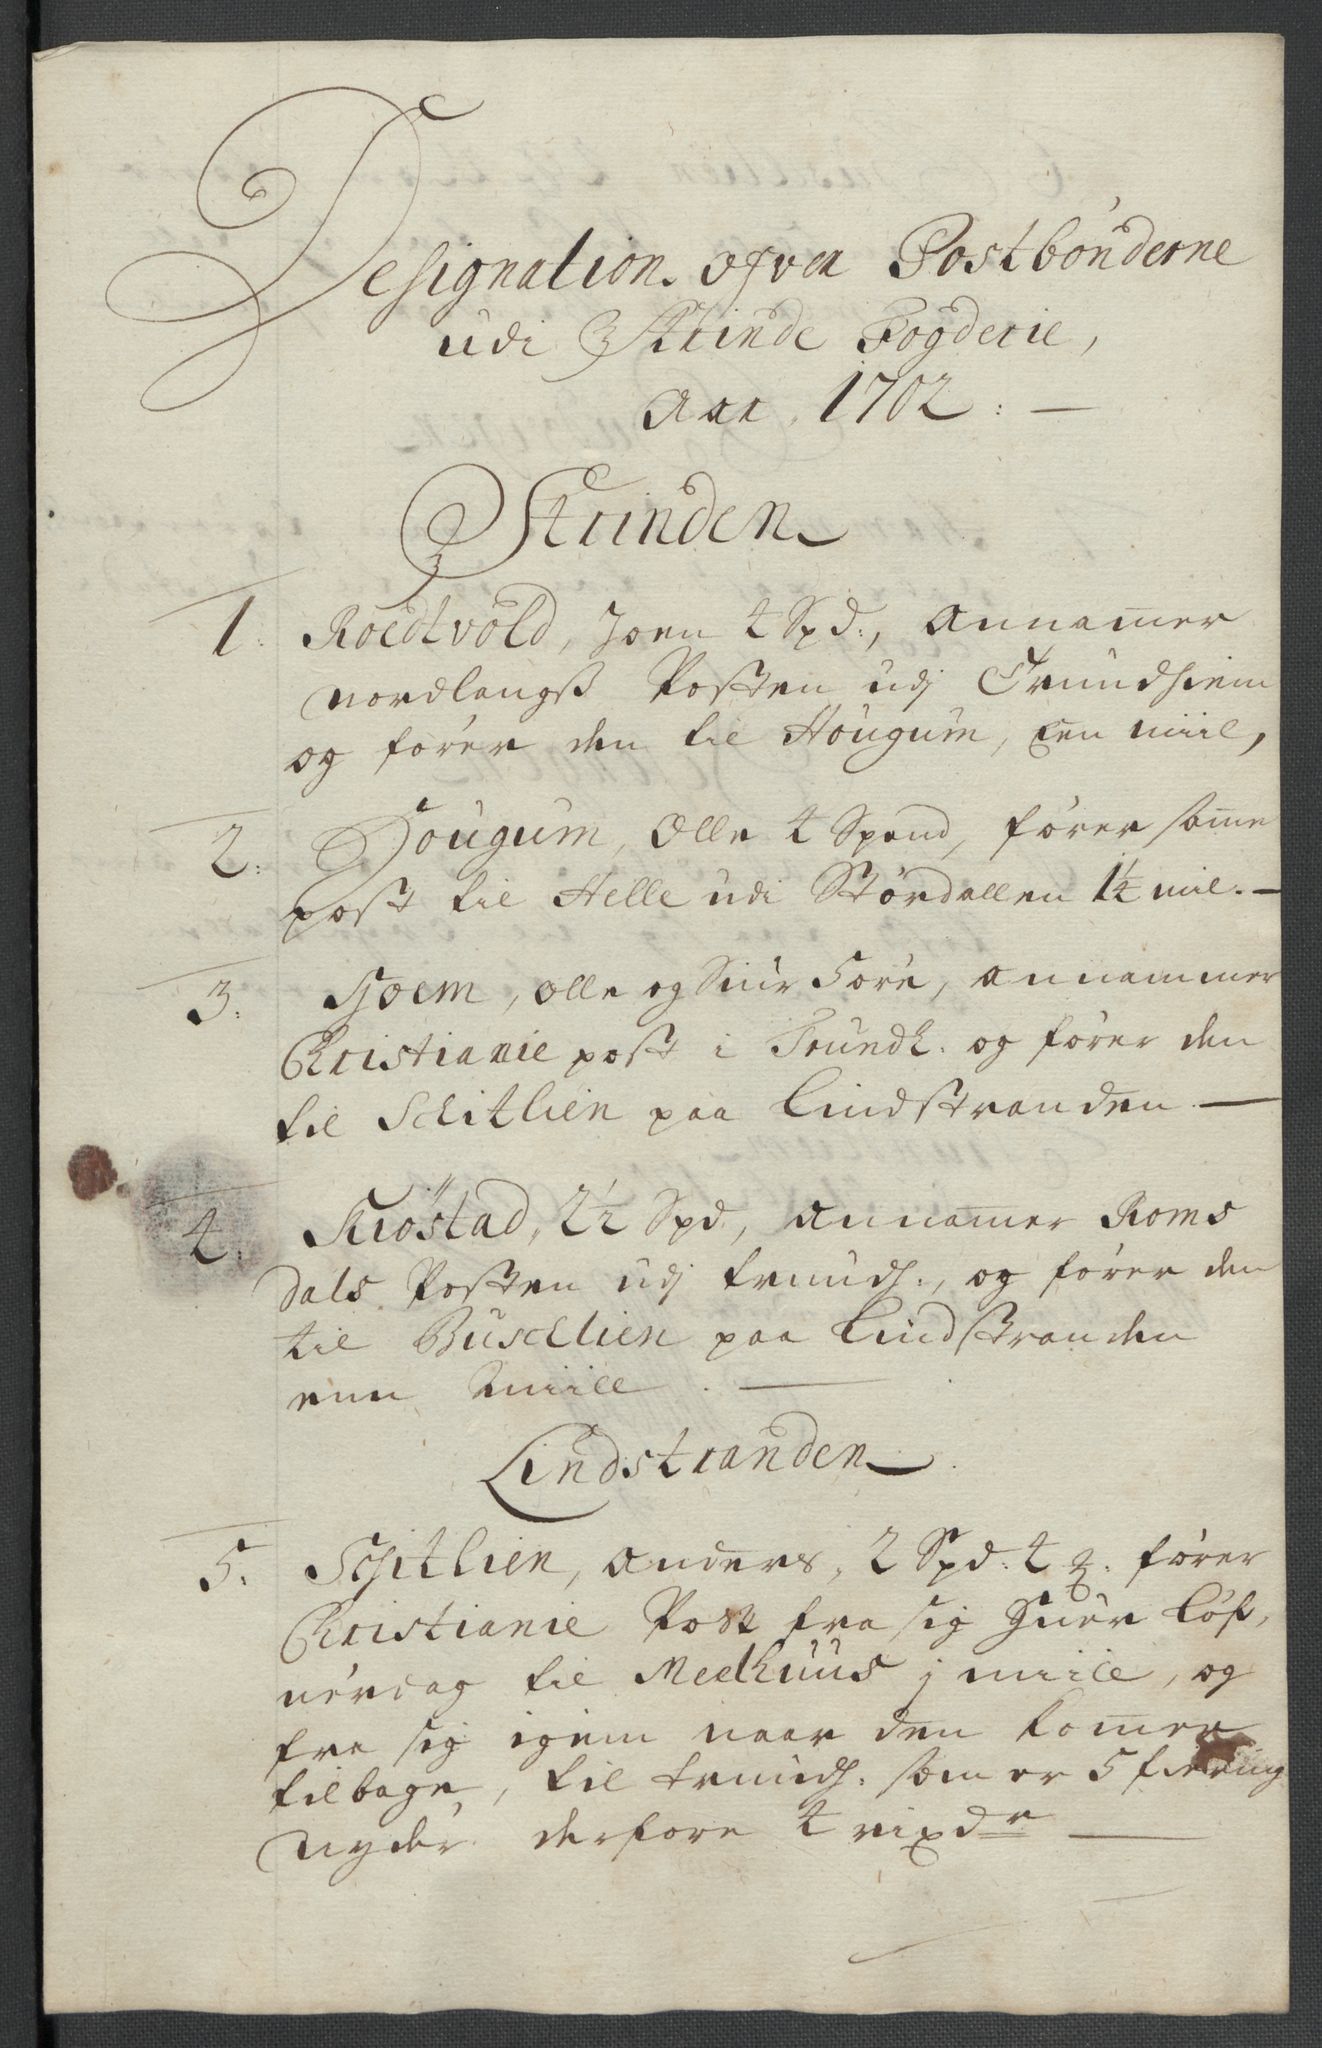 Designation ofver Postbønderne
udi Strinde Fogderie,
Aar 1702: —
Strinden
1. Roedtvold, Joen 4 Spd:, annamer
nordlangs Posten udj Trundhiem
og fører den til Hougum, Een miil,
2: Hougum, Olle 4 Spand, fører same
post til Helle udi Størdallen 1¼ mil. —
3: Sioem, Olle og Siur Fore, annammer
Christianie post i Trundh. og fører den
til Schitlien paa Lindstranden —
4. Kiøstad, 2½ Spd:, annamer Roms
dals Posten udj trundh:, og fører den
til Buschlien paa Lindstranden
enn miill. —
Lindstranden
5. Schitlien, Anders, 2 Spd: 4 fører
Christianie Post fra sig huer Løf,
uerdag til Meelhuus j miile, og
fra sig igiem naar den komer
tilbage, til trundh: som er 5 fiering
nyder derfore 4 rixdr —